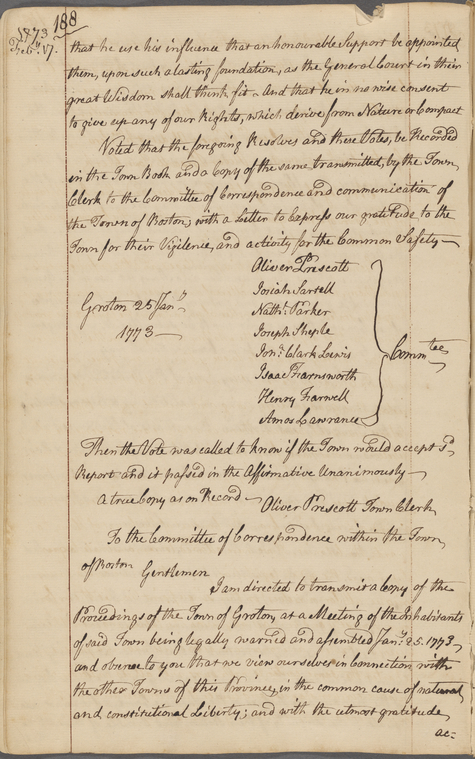 188
1773
Feb.y 17.
that he use his influence that an honourable Support be appointed
them, upon such a lasting foundation, as the General Court in their
great Wisdom shall think fit - And that he in no wise consent
to give up any of our Rights, which derive from Nature or Compact
Voted that the foregoing Resolves and these Votes, be Recorded
in the Town Book and a Copy of the same transmitted, by the Town
Clerk to the Committee of Correspondence and communication of
the Town of Boston, with a Letter to Express our gratitude to the
Town for their Vigilence, and activity for the Common Safety —
Oliver Prescott
Josiah Sartell
Nath.l Parker
Joseph Sheple
Jon.a Clark Lewis
Isaac Farnsworth
Henry Farwell
Amos Lawrance
Commtee
Groton 25 Jan.y
1773 —
Then the Vote was called to know if the Town would accept s.d
Report and it passed in the Affirmative Unanimously —
a true Copy as on Record —
Oliver Prescott Town Clerk
To the Committee of Correspondence within the Town
of Boston
Gentlemen
I am directed to transmit a Copy of the
Proceedings of the Town of Groton, at a Meeting of the Inhabitants
of said Town being legally warned and assembled Jan.y 25. 1773,
and observe to you that we view ourselves in Connection with
the other Towns of this Province, in the common cause of natural
and constitutional Liberty; and with the utmost gratitude
ac-